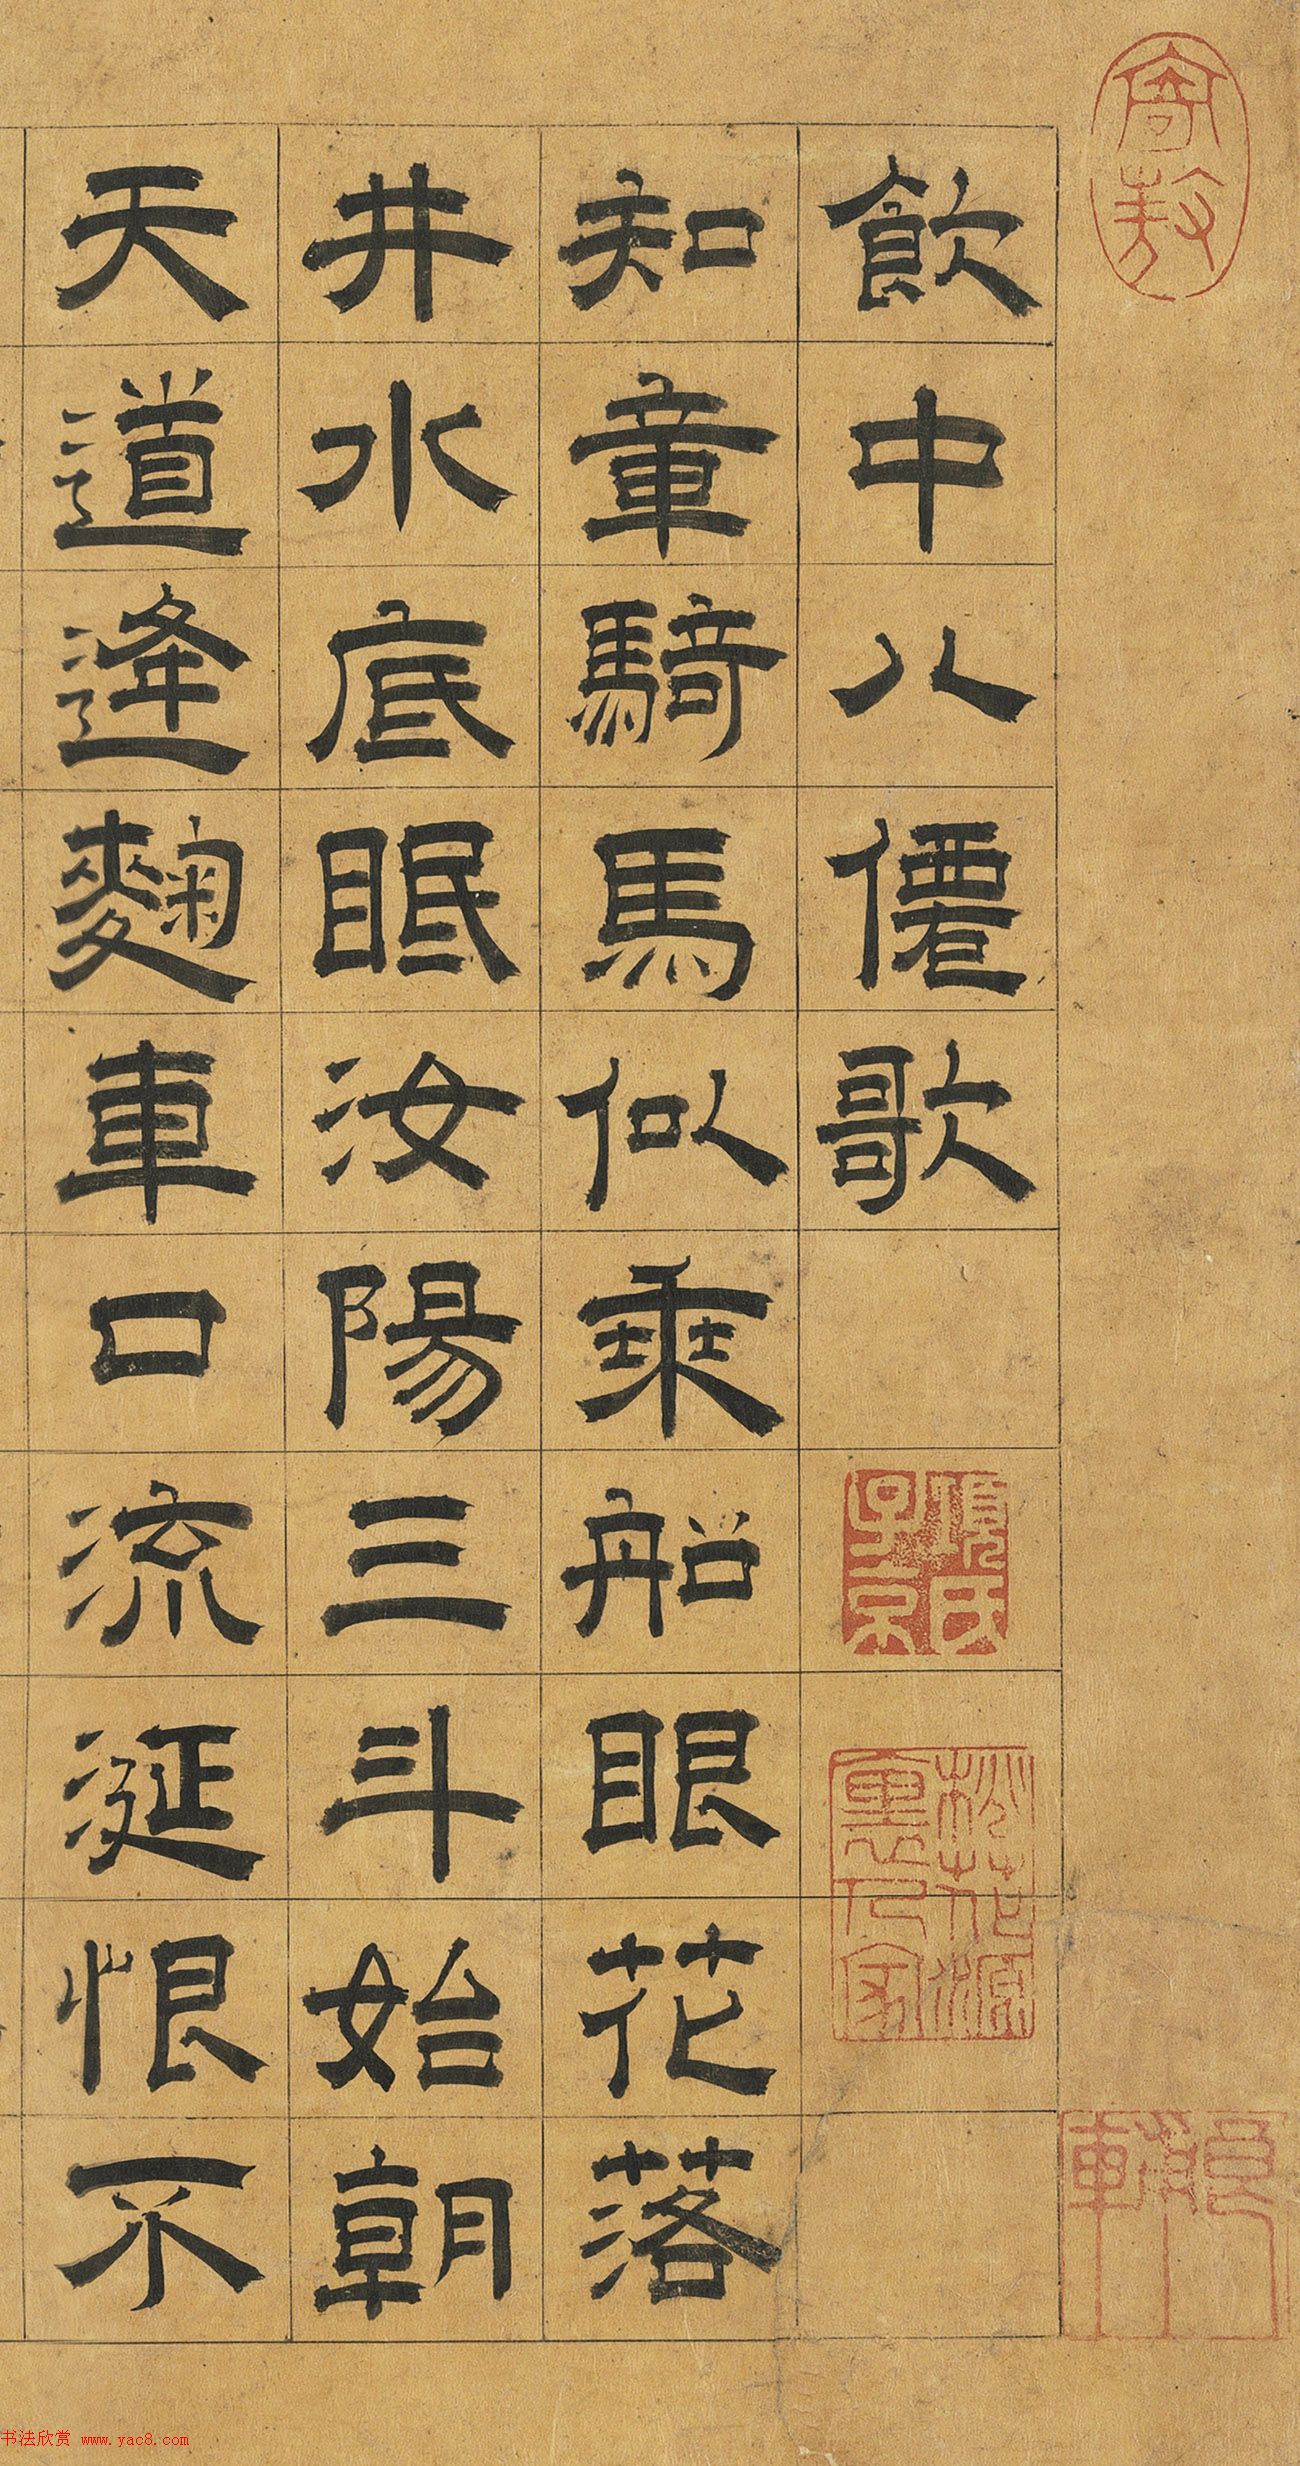 寄敖
飲中八僊歌
項氏子京
桃花源裏人家
知章騎馬似乘船眼花落
井水底眠汝陽三斗始朝
天道逢麴車口流涎恨不
书法欣赏 www.yac8.com